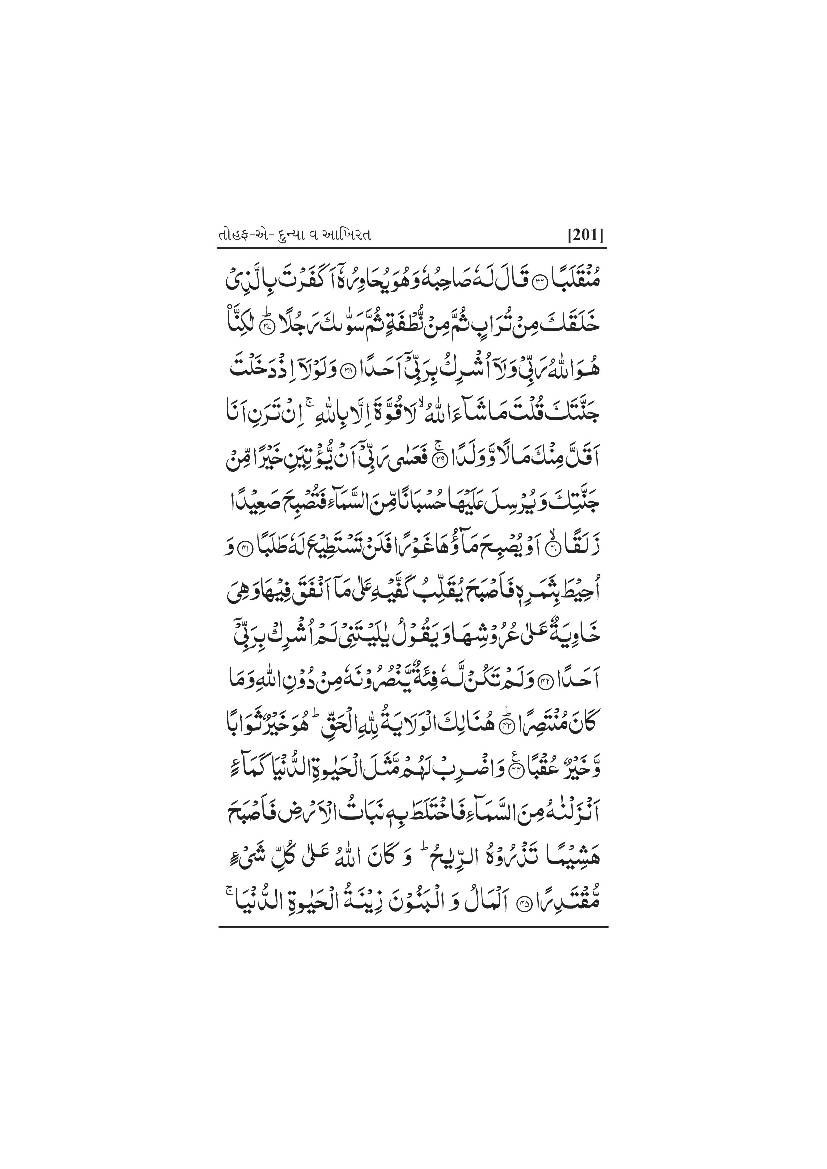 તોહફ-એ- દુન્યા વ આખિરત [201]
مُنْقَلَبًا ۝۳۶ قَالَ لَهٗ صَاحِبُهٗ وَهُوَ يُحَاوِرُهٗۤ اَكَفَرْتَ بِالَّذِىْ
خَلَقَكَ مِنْ تُرَابٍ ثُمَّ مِنْ نُّطْفَةٍ ثُمَّ سَوّٰىكَ رَجُلًا ؕ۝۳۷ لٰكِنَّا۠
هُوَ اللّٰهُ رَبِّىْ وَلَاۤ اُشْرِكُ بِرَبِّىْۤ اَحَدًا ۝۳۸ وَلَوْلَاۤ اِذْ دَخَلْتَ
جَنَّتَكَ قُلْتَ مَا شَآءَ اللّٰهُ ۙ لَا قُوَّةَ اِلَّا بِاللّٰهِ ۚ اِنْ تَرَنِ اَنَا
اَقَلَّ مِنْكَ مَالًا وَّوَلَدًا ۚ۝۳۹ فَعَسٰى رَبِّىْۤ اَنْ يُّؤْتِيَنِ خَيْرًا مِّنْ
جَنَّتِكَ وَيُرْسِلَ عَلَيْهَا حُسْبَانًا مِّنَ السَّمَآءِ فَتُصْبِحَ صَعِيْدًا
زَلَقًا ۙ۝۴۰ اَوْ يُصْبِحَ مَآؤُهَا غَوْرًا فَلَنْ تَسْتَطِيْعَ لَهٗ طَلَبًا ۝۴۱ وَ
اُحِيْطَ بِثَمَرِهٖ فَاَصْبَحَ يُقَلِّبُ كَفَّيْهِ عَلٰى مَاۤ اَنْفَقَ فِيْهَا وَهِىَ
خَاوِيَةٌ عَلٰى عُرُوْشِهَا وَيَقُوْلُ يٰلَيْتَنِىْ لَمْ اُشْرِكْ بِرَبِّىْۤ
اَحَدًا ۝۴۲ وَلَمْ تَكُنْ لَّهٗ فِئَةٌ يَّنْصُرُوْنَهٗ مِنْ دُوْنِ اللّٰهِ وَمَا
كَانَ مُنْتَصِرًا ؕ۝۴۳ هُنَالِكَ الْوَلَايَةُ لِلّٰهِ الْحَقِّ ؕ هُوَ خَيْرٌ ثَوَابًا
وَّخَيْرٌ عُقْبًا ۝۴۴ وَاضْرِبْ لَهُمْ مَّثَلَ الْحَيٰوةِ الدُّنْيَا كَمَآءٍ
اَنْزَلْنٰهُ مِنَ السَّمَآءِ فَاخْتَلَطَ بِهٖ نَبَاتُ الْاَرْضِ فَاَصْبَحَ
هَشِيْمًا تَذْرُوْهُ الرِّيٰحُ ؕ وَكَانَ اللّٰهُ عَلٰى كُلِّ شَىْءٍ
مُّقْتَدِرًا ۝۴۵ اَلْمَالُ وَ الْبَنُوْنَ زِيْنَةُ الْحَيٰوةِ الدُّنْيَا ۚ